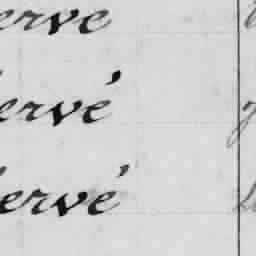 erve
ervé
ervé